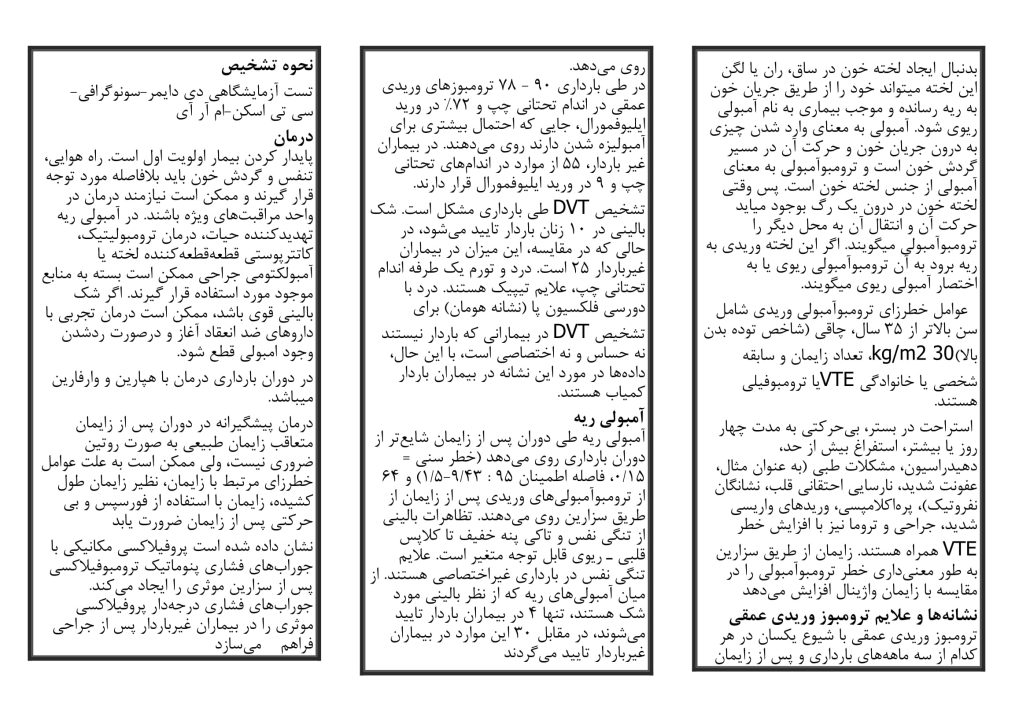 بدنبال ایجاد لخته خون در ساق، ران یا لگن
این لخته میتواند خود را از طریق جریان خون
به ریه رسانده و موجب بیماری به نام آمبولی
ریوی شود. آمبولی به معنای وارد شدن چیزی
به درون جریان خون و حرکت آن در مسیر
گردش خون است و ترومبوآمبولی به معنای
آمبولی از جنس لخته خون است. پس وقتی
لخته خون در درون یک رگ بوجود میاید
حرکت آن و انتقال آن به محل دیگر را
ترومبوآمبولی میگویند. اگر این لخته وریدی به
ریه برود به آن ترومبوآمبولی ریوی یا به
اختصار آمبولی ریوی میگویند.
عوامل خطرزای ترومبوآمبولی وریدی شامل
سن بالاتر از ۳۵ سال، چاقی (شاخص توده بدن
بالا)kg/m2 30، تعداد زایمان و سابقه
شخصی یا خانوادگی VTEیا ترومبوفیلی
هستند.
استراحت در بستر، بی‌حرکتی به مدت چهار
روز یا بیشتر، استفراغ بیش از حد،
دهیدراسیون، مشکلات طبی (به عنوان مثال،
عفونت شدید، نارسایی احتقانی قلب، نشانگان
نفروتیک)، پره‌اکلامپسی، وریدهای واریسی
شدید، جراحی و تروما نیز با افزایش خطر
VTE همراه هستند. زایمان از طریق سزارین
به طور معنی‌داری خطر ترومبوآمبولی را در
مقایسه با زایمان واژینال افزایش می‌دهد
نشانه‌ها و علایم ترومبوز وریدی عمقی
ترومبوز وریدی عمقی با شیوع یکسان در هر
کدام از سه ماهه‌های بارداری و پس از زایمان
روی می‌دهد.
در طی بارداری ۹۰ - ۷۸ ترومبوزهای وریدی
عمقی در اندام تحتانی چپ و ۷۲٪ در ورید
ایلیوفمورال، جایی که احتمال بیشتری برای
آمبولیزه شدن دارند روی می‌دهند. در بیماران
غیر باردار، ۵۵ از موارد در اندام‌های تحتانی
چپ و ۹ در ورید ایلیوفمورال قرار دارند.
تشخیص DVT طی بارداری مشکل است. شک
بالینی در ۱۰ زنان باردار تایید می‌شود، در
حالی که در مقایسه، این میزان در بیماران
غیرباردار ۲۵ است. درد و تورم یک طرفه اندام
تحتانی چپ، علایم تیپیک هستند. درد با
دورسی فلکسیون پا (نشانه هومان) برای
تشخیص DVT در بیمارانی که باردار نیستند
نه حساس و نه اختصاصی است، با این حال،
داده‌ها در مورد این نشانه در بیماران باردار
کمیاب هستند.
آمبولی ریه
آمبولی ریه طی دوران پس از زایمان شایع‌تر از
دوران بارداری روی می‌دهد (خطر سنی =
۰/۱۵، فاصله اطمینان ۹۵ : ۹/۴۳-۱/۵) و ۶۴
از ترومبوآمبولی‌های وریدی پس از زایمان از
طریق سزارین روی می‌دهند. تظاهرات بالینی
از تنگی نفس و تاکی پنه خفیف تا کلاپس
قلبی ـ ریوی قابل توجه متغیر است. علایم
تنگی نفس در بارداری غیراختصاصی هستند. از
میان آمبولی‌های ریه که از نظر بالینی مورد
شک هستند، تنها ۴ در بیماران باردار تایید
می‌شوند، در مقابل ۳۰ این موارد در بیماران
غیرباردار تایید می‌گردند
نحوه تشخیص
تست آزمایشگاهی دی دایمر-سونوگرافی-
سی تی اسکن-ام آر آی
درمان
پایدار کردن بیمار اولویت اول است. راه هوایی،
تنفس و گردش خون باید بلافاصله مورد توجه
قرار گیرند و ممکن است نیازمند درمان در
واحد مراقبت‌های ویژه باشند. در آمبولی ریه
تهدیدکننده حیات، درمان ترومبولیتیک،
کاتترپوستی قطعه‌قطعه‌کننده لخته یا
آمبولکتومی جراحی ممکن است بسته به منابع
موجود مورد استفاده قرار گیرند. اگر شک
بالینی قوی باشد، ممکن است درمان تجربی با
داروهای ضد انعقاد آغاز و درصورت ردشدن
وجود امبولی قطع شود.
در دوران بارداری درمان با هپارین و وارفارین
میباشد.
درمان پیشگیرانه در دوران پس از زایمان
متعاقب زایمان طبیعی به صورت روتین
ضروری نیست، ولی ممکن است به علت عوامل
خطرزای مرتبط با زایمان، نظیر زایمان طول
کشیده، زایمان با استفاده از فورسپس و بی
حرکتی پس از زایمان ضرورت یابد
نشان داده شده است پروفیلاکسی مکانیکی با
جوراب‌های فشاری پنوماتیک ترومبوفیلاکسی
پس از سزارین موثری را ایجاد می‌کند.
جوراب‌های فشاری درجه‌دار پروفیلاکسی
موثری را در بیماران غیرباردار پس از جراحی
فراهم می‌سازد